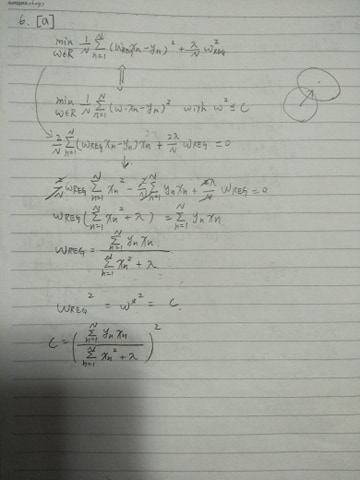 6. [a]
min w∈R 1/N Σ_{n=1}^{N} (w_REG x_n - y_n)² + λ/N w²_REG
⇕
min w∈R 1/N Σ_{n=1}^{N} (w·x_n - y_n)² with w² ≤ C
2/N Σ_{n=1}^{N} (w_REG x_n - y_n) x_n + 2λ/N w_REG = 0
↓
2/N w_REG Σ_{n=1}^{N} x_n² - 2/N Σ_{n=1}^{N} y_n x_n + 2λ/N w_REG = 0
w_REG (Σ_{n=1}^{N} x_n² + λ) = Σ_{n=1}^{N} y_n x_n
w_REG = Σ_{n=1}^{N} y_n x_n / Σ_{n=1}^{N} x_n² + λ
w_REG² = w*² = C.
C = (Σ_{n=1}^{N} y_n x_n / Σ_{n=1}^{N} x_n² + λ)²